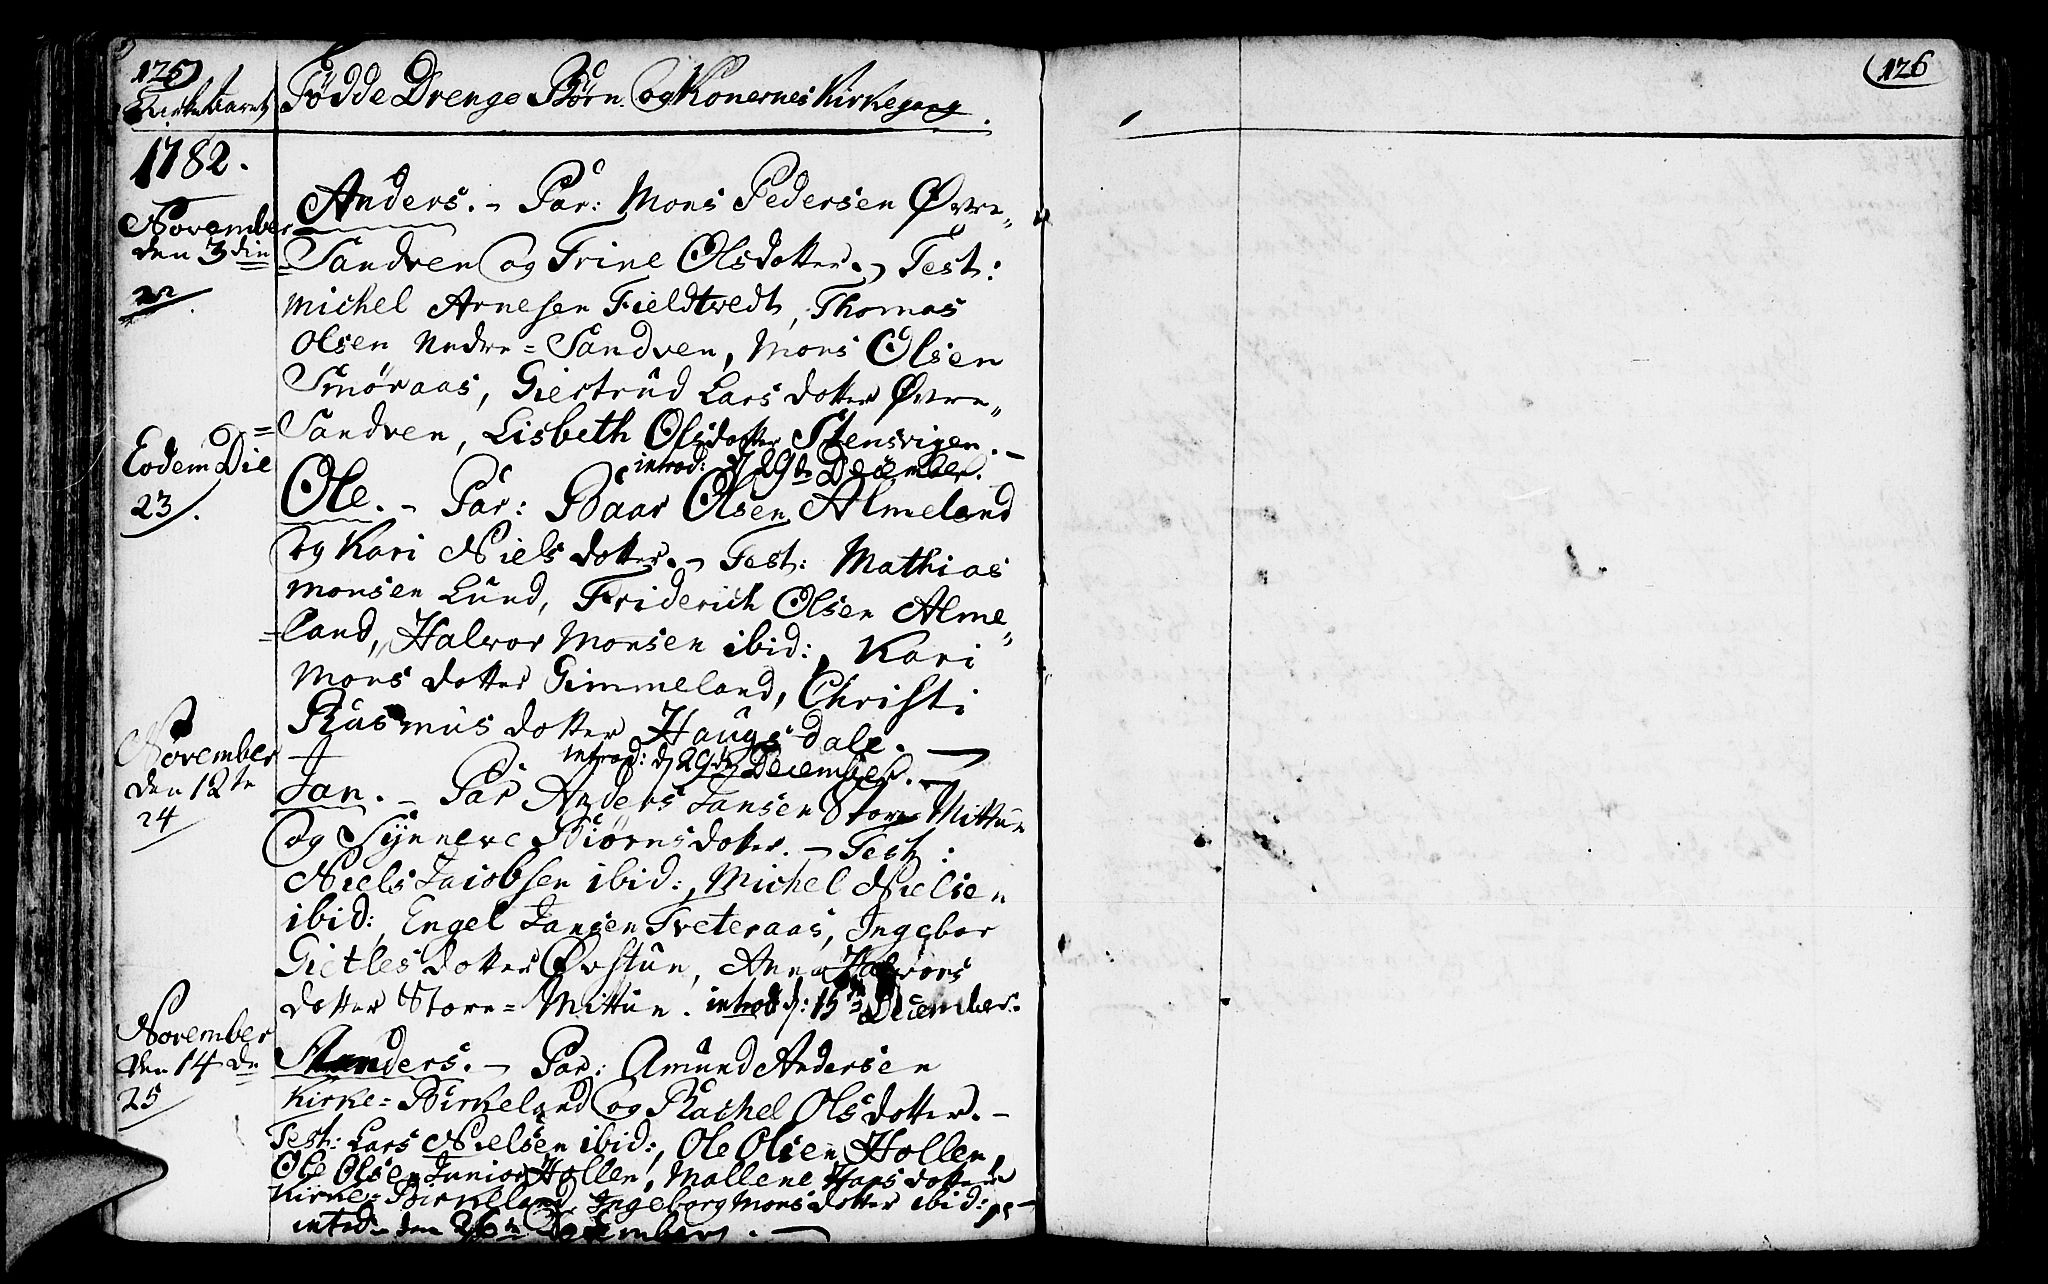 125)
Fødde Drenge Børn. Og Konernes Kirkegang.
1782.
November
den 3die
22.
Anders. - Par: Mons Pedersen Øvre„
=Sandven og Trine Olsdotter. - Test:
Michel Arnesen Fieldtvedt, Thomas
Olsen Nedre=Sandven, Mons Olsen
Smøraas, Giertrud Lars dotter Øvre„
=Sandven, Lisbeth Olsdotter Stensvigen. -
introd: d 29de December.
Eodem Die
23.
Ole. - Par: Baar Olsen Almeland
og Kari Niels dotter. - Test: Mathias
Monsen Lund, Friderich Olsen Alme„
=land, Halvor Monsen ibid:, Kari
Mons dotter Gimmeland, Christi
Rasmus dotter Haugsdale. -
introd: d 29de December. -
November
den 12te
24
Jan. - Par Anders Jansen Store Mittun
og Synneve Biørnsdotter. - Test:
Niels Jacobsen ibid:, Michel Nielsen
ibid:, Engel Jansen Tveteraas, Ingebor
Gietles dotter Øvstun, Anna Halvors
dotter Store=Mittun. introd d: 15de December.
November
den 14de
25
Anders. - Par: Amund Andersen
Kirke=Birkeland og Rachel Olsdotter. -
Test: Lars Nielsen ibid:, Ole Olsen Hollen,
Ole Olsen Junior Hollen, Mallene Hans dotter
Kirke=Birkeland, Ingeborg Mons dotter ibid:
introd: den 26de December. -
(126